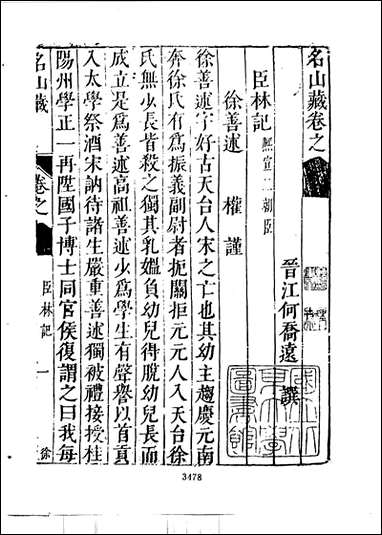 名山藏卷之
晉江何喬遠 撰
臣林記 熙宣二朝臣
徐善述 權謹
徐善述字好古天台人宋之亡也其幼主趨慶元南
奔徐氏有爲振義副尉者扼關拒元元人入天台徐
氏無少長者殺之獨其乳媼負幼兒得脫幼兒長而
成立是爲善述高祖善述少爲學生有聲譽以首貢
入太學祭酒宋訥待諸生嚴重善述獨被禮接授桂
陽州學正一再陞國子博士同官侯復謂之曰我每
名山藏
卷之
臣林記
一
徐
3478